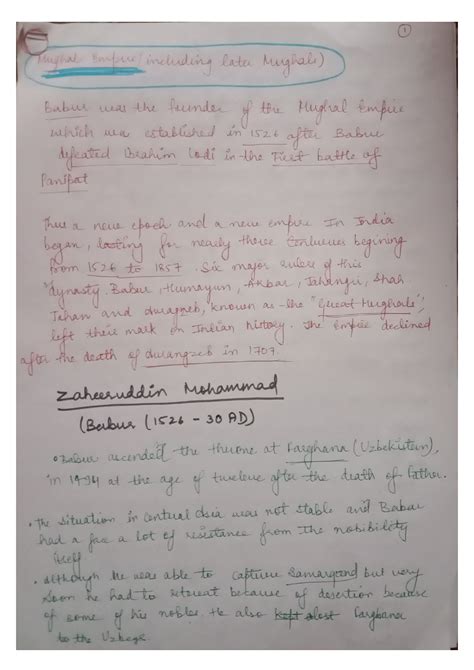 1
Mughal Empire (including later Mughals)
Babur was the founder of the Mughal Empire
which was established in 1526 after Babur
defeated Ibrahim Lodi in the First battle of
Panipat
Thus a new epoch and a new empire In India
began, lasting for nearly three centuries begining
from 1526 to 1857. Six major rulers of this
dynasty. Babur, Humayun, Akbar, Jahangir, Shah
Jahan and Aurangzeb, known as the "Great Mughals",
left their mark on Indian history. The Empire declined
after the death of Aurangzeb in 1707.
Zaheeruddin Mohammad
(Babur (1526 - 30 AD)
Babur ascended the throne at Farghana (Uzbekistan),
in 1494 at the age of twelve after the death of Father.
. The situation in central Asia was not stable and Babar
had a face a lot of resistance from the nobibility
itself
. Although he was able to capture Samarqand but very
soon he had to retreat because of desertion because
of some of his nobles. He also lost Farghana
to the Uzbegs.